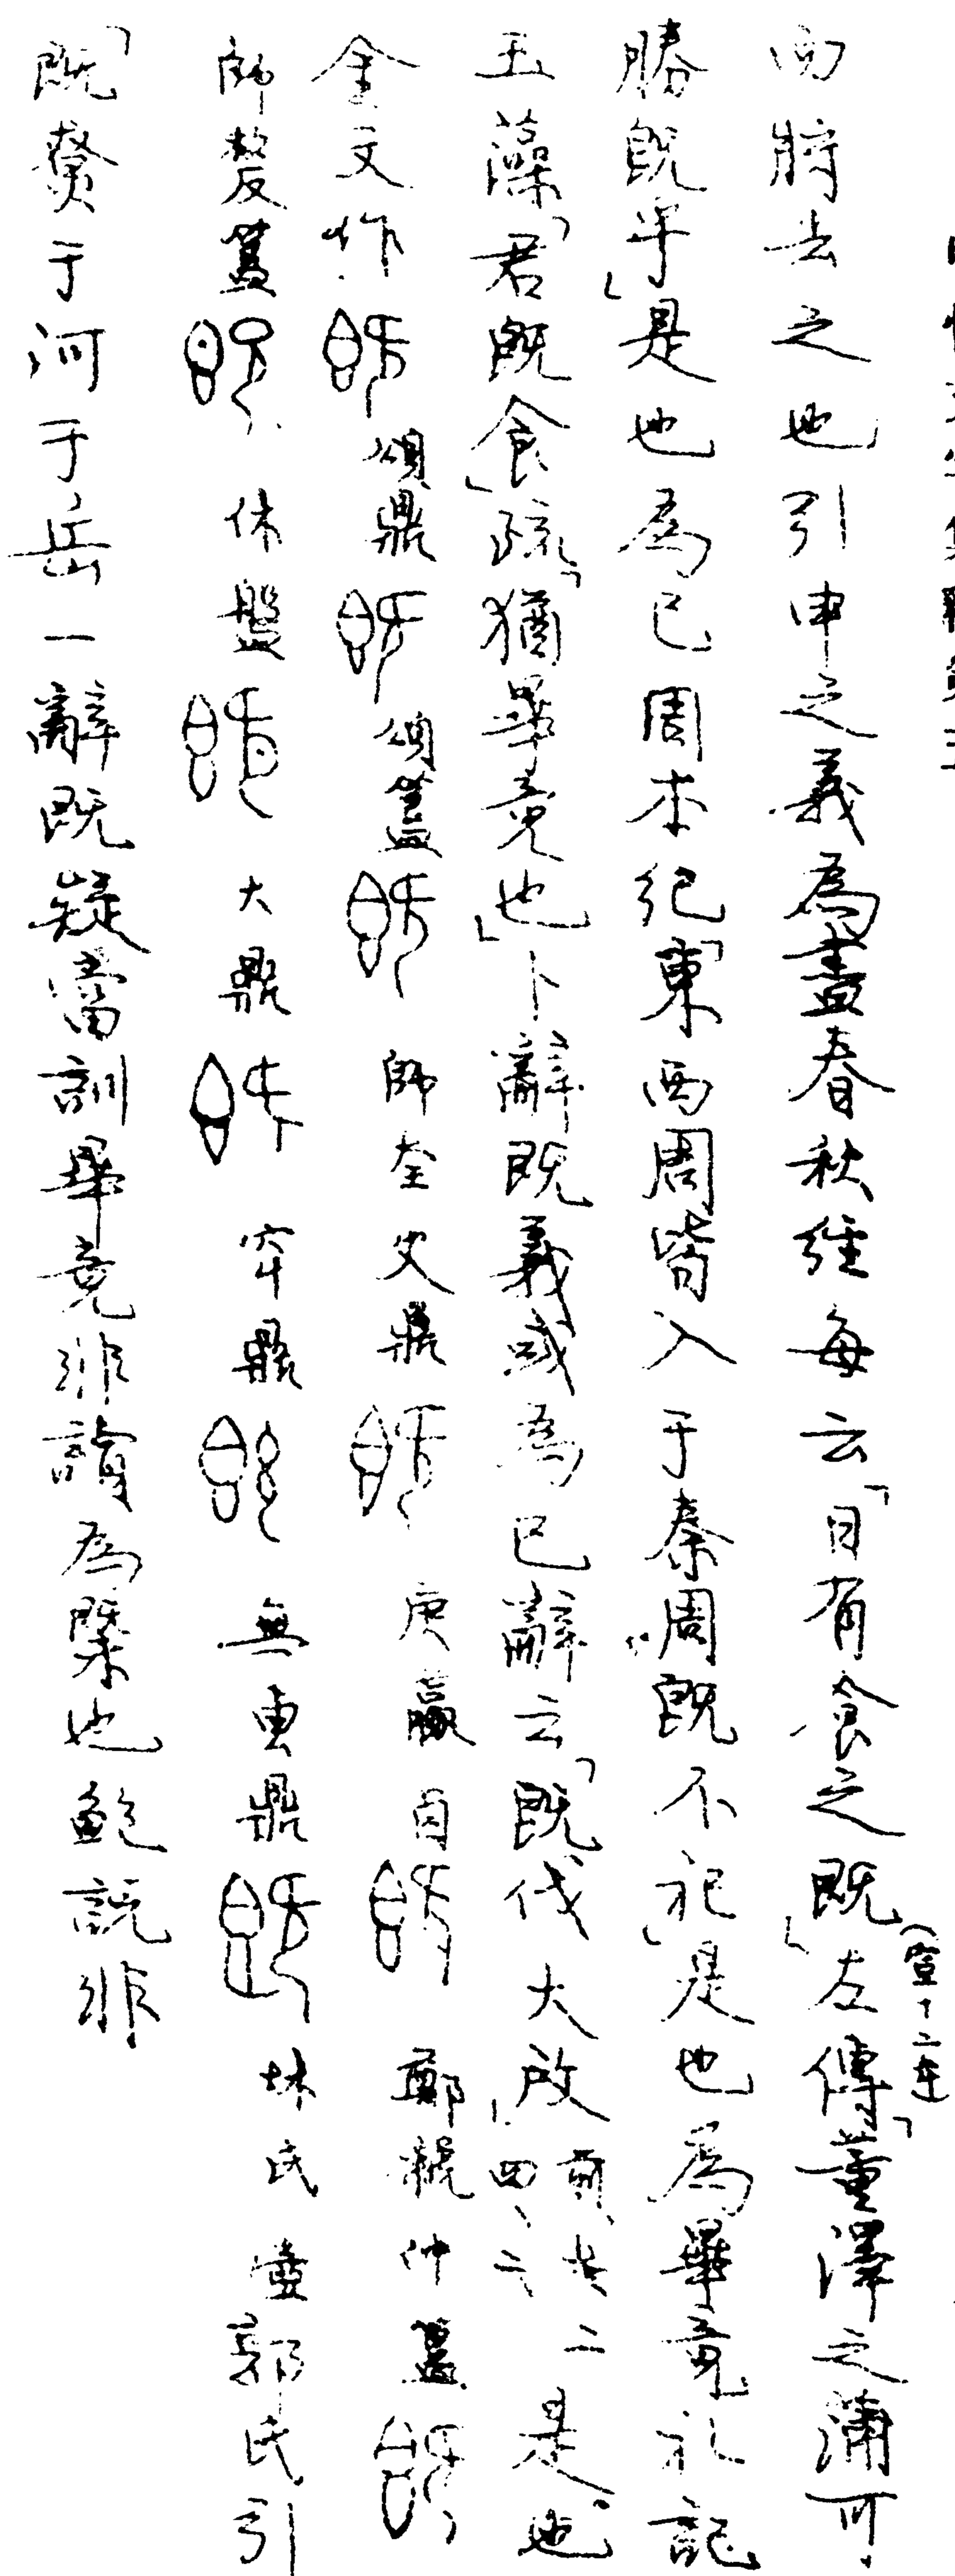 而將去之也引申之義為盡春秋經每云「日有食之既」左傳(宣十二年「董澤之蒲可
勝既乎」是也為已周本紀「東西周皆入于秦周既不祀」是也為畢竟礼記
玉藻「君既食」疏「猶畢竟也」卜辭既義或為已辭云「既伐大啟」前、七、四、二、二是也
金文作 頌鼎 頌簋 師奎父鼎 庚嬴卣 鄭虢仲簋
師嫠簋 休盤 大鼎 鼎 無叀鼎 林氏壺郭氏引
「既尞于河于岳一辭既疑當訓畢竟非讀為槩也鮑說非